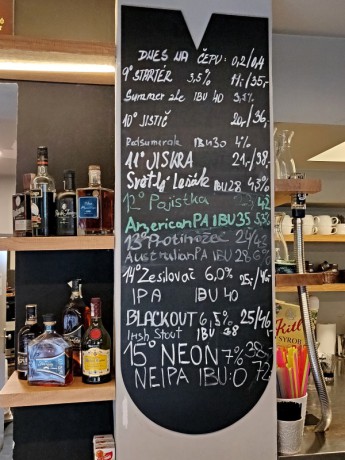 DNES NA ČEPU: 0,2/0,4
9° STARTÉR 3,5% /35,-
Summer ale IBU 40
10° JISTIČ /36,-
IBU 30 4%
11° JISKRA 21,-/38,-
Světlý Ležák IBU 28 4,3%
12° Pojistka 23/42
American PA IBU 35 5,3%
13° Protinožec 24/43
Australian PA IBU 28 6%
14° Zesilovač 6,0% 25,-/45,-
IPA IBU 40
BLACKOUT 6,5% 25/46,-
Irish Stout IBU 38
15° NEON 7% 38,-
NEIPA IBU:0 72
SYROB